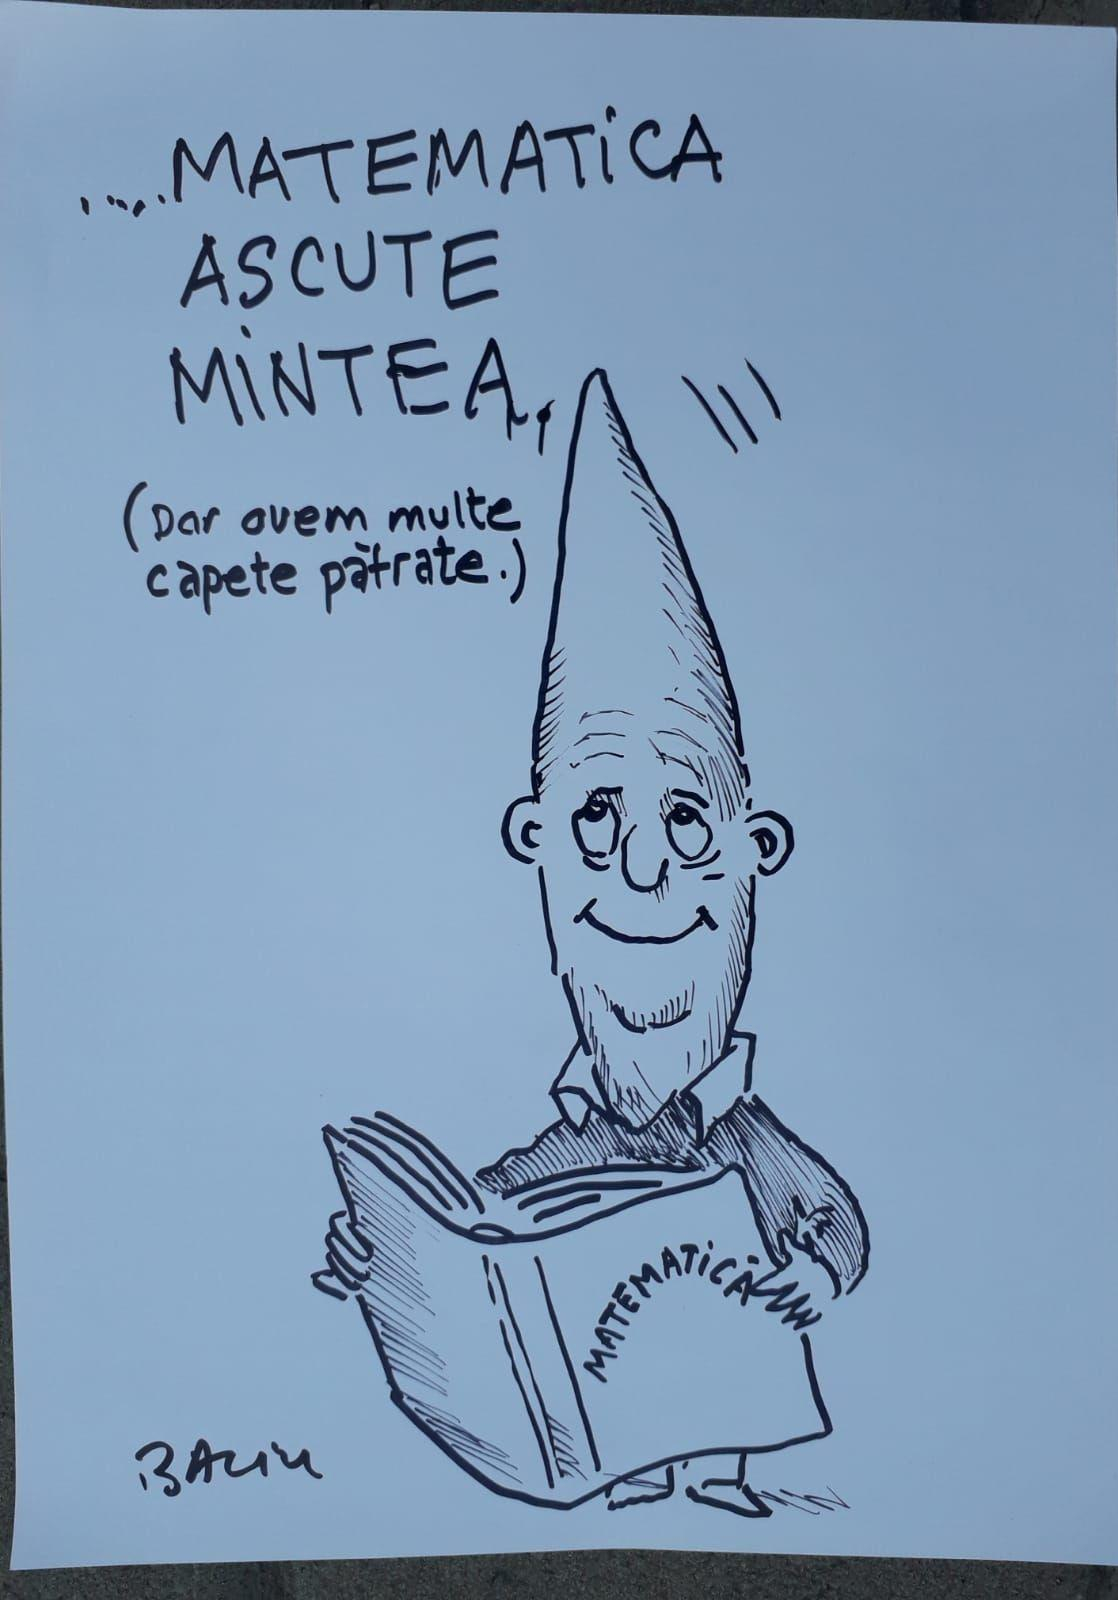 .....MATEMATiCA
ASCUTE
MiNTEA..
(Dar avem multe
capete pătrate.)
MATEMATiCĂ